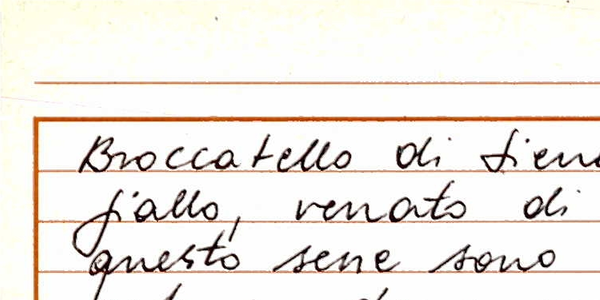 Broccatello di Siena
giallo, venato di
questo sene sono